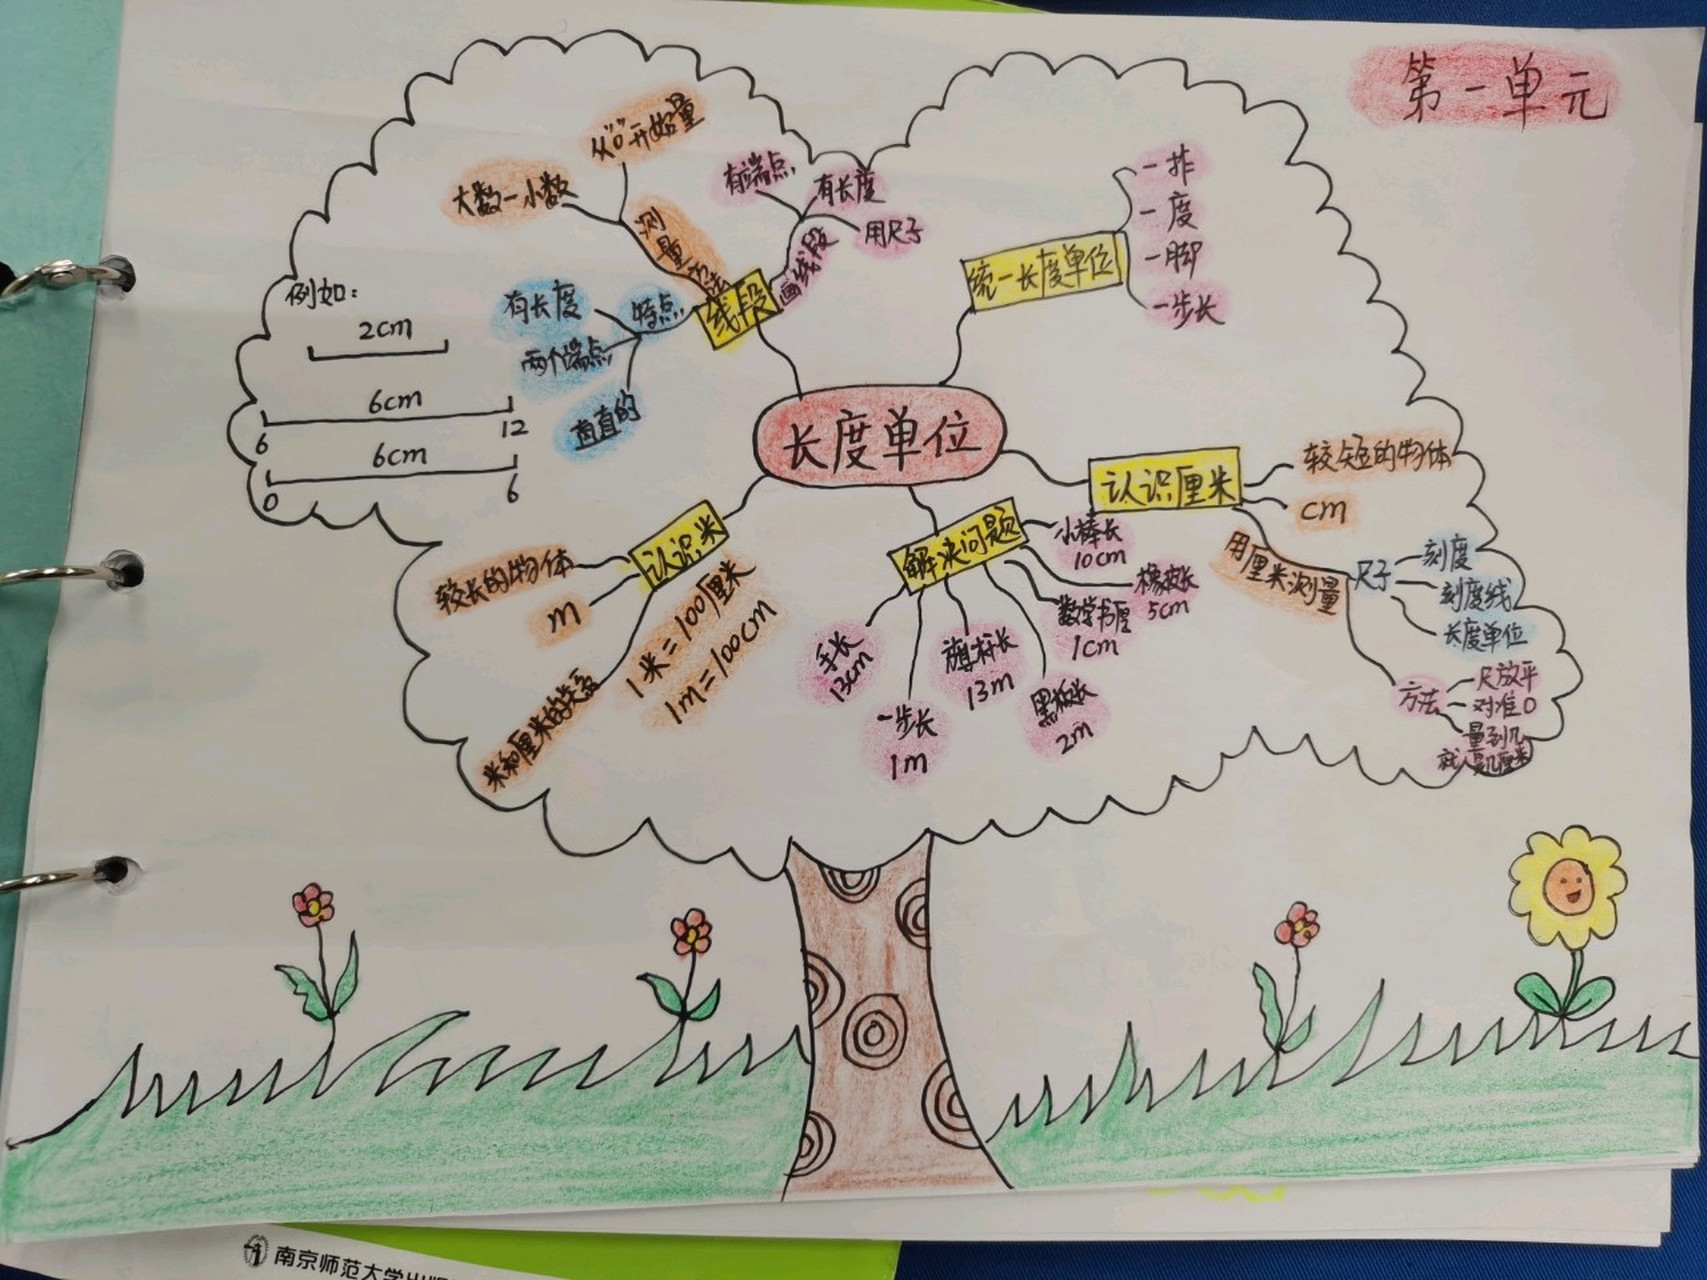 第一单元
长度单位
线段
测量方法
从"0"开始量
大数-小数
画线段
有端点
有长度
用尺子
特点
有长度
两个端点
直直的
例如:
2cm
6cm
6 12
6cm
0 6
统一长度单位
一拃
一度
一脚
一步长
认识厘米
较短的物体
cm
用厘米测量
尺子
刻度
刻度线
长度单位
方法
尺放平
对准0
量到几
就是几厘米
解决问题
小棒长
10cm
橡皮长
5cm
数学书厚
1cm
黑板长
2m
旗杆长
13m
一步长
1m
手长
13cm
认识米
较长的物体
m
米和厘米的关系
1米=100厘米
1m=100cm
南京师范大学出版